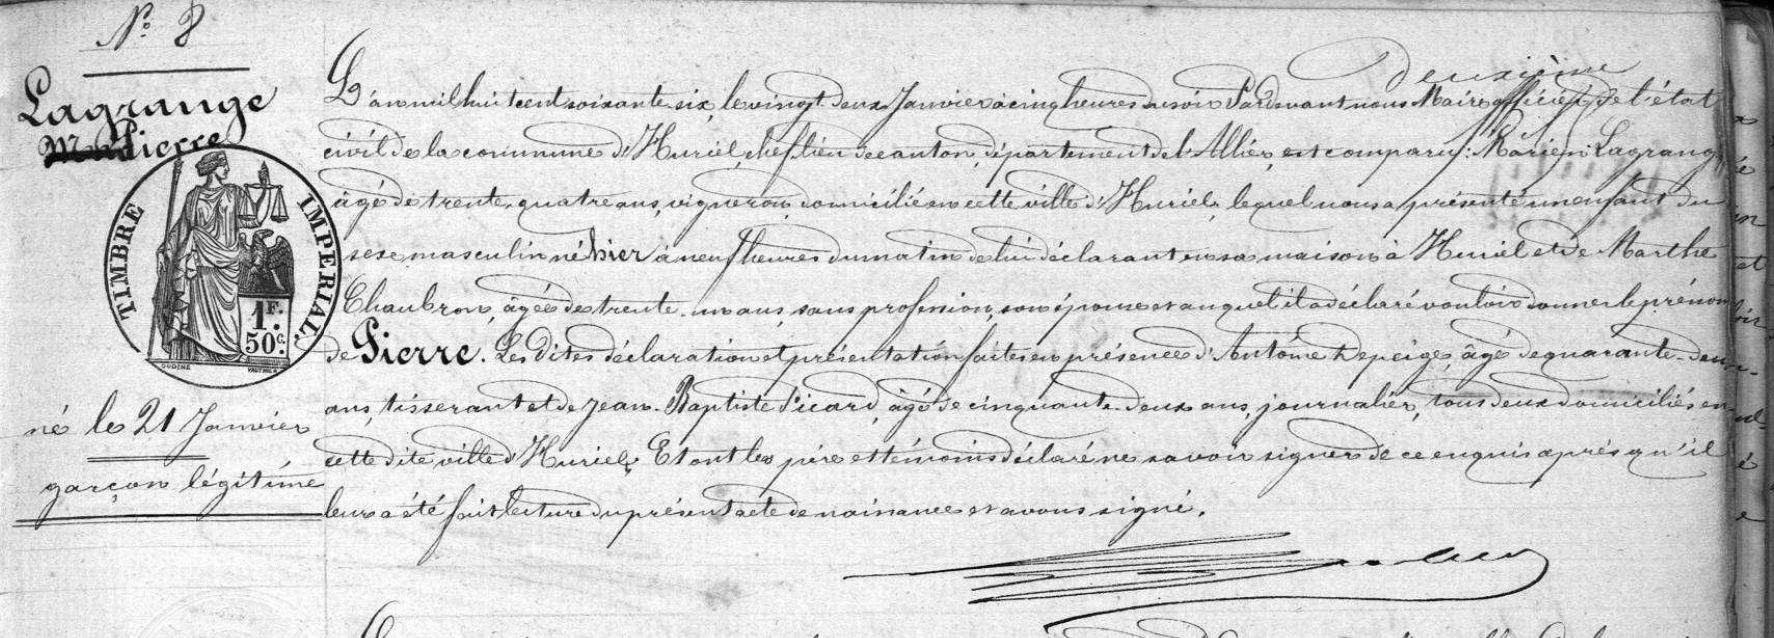 N° 8
Lagrange
Pierre
TIMBRE IMPERIAL
1F.
50c.
né le 21 Janvier
garçon légitime
deuxième
L'an mil huit cent soixante six, le vingt deux Janvier à cinq heures du soir Pardevant nous Maire officier de l'état
civil de la commune d'Huriel chef lieu de canton, département de l'Allier, est comparu: Lagrange
âgé de trente-quatre ans, vigneron, domicilié en cette ville d'Huriel, lequel nous a présenté un enfant du
sexe masculin né hier à neuf heures du matin de lui déclarant en sa maison à Huriel et de Marthe
Chaubron, âgée de trente-un ans, sans profession, son épouse et auquel il a déclaré vouloir donner le prénom
de Pierre. Les dites déclaration et présentation faites en présence d'Antoine Depeige, âgé de quarante-deux
ans, tisserant et de Jean-Baptiste Picard, âgé de cinquante-deux ans, journalier, tous deux domiciliés en
cette dite ville d'Huriel. Et ont les père et témoins déclaré ne savoir signer de ce enquis après qu'il
leur a été fait lecture du présent acte de naissance et avons signé.